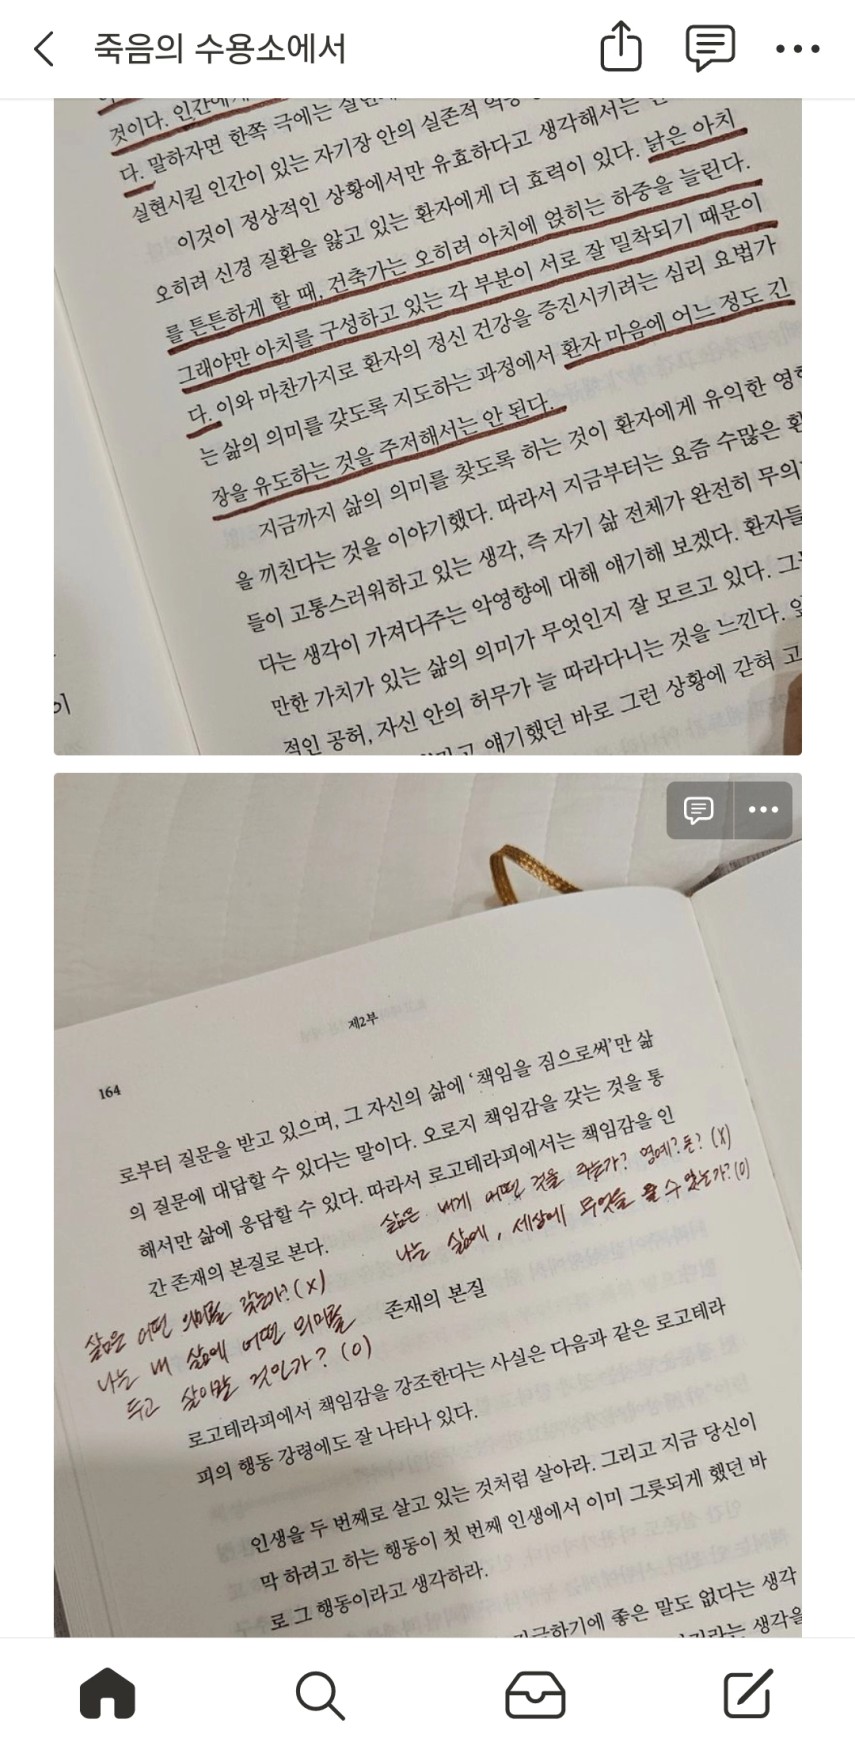 죽음의 수용소에서
것이다. 인간에게
다. 말하자면 한쪽 극에는 실현
실현시킬 인간이 있는 자기장 안의 실존적 역동
이것이 정상적인 상황에서만 유효하다고 생각해서는 안
오히려 신경 질환을 앓고 있는 환자에게 더 효력이 있다. 낡은 아치
를 튼튼하게 할 때, 건축가는 오히려 아치에 얹히는 하중을 늘린다.
그래야만 아치를 구성하고 있는 각 부분이 서로 잘 밀착되기 때문이
다. 이와 마찬가지로 환자의 정신 건강을 증진시키려는 심리 요법가
는 삶의 의미를 갖도록 지도하는 과정에서 환자 마음에 어느 정도 긴
장을 유도하는 것을 주저해서는 안 된다.
지금까지 삶의 의미를 찾도록 하는 것이 환자에게 유익한 영향
을 끼친다는 것을 이야기했다. 따라서 지금부터는 요즘 수많은 환
들이 고통스러워하고 있는 생각, 즉 자기 삶 전체가 완전히 무의
다는 생각이 가져다주는 악영향에 대해 얘기해 보겠다. 환자들
만한 가치가 있는 삶의 의미가 무엇인지 잘 모르고 있다. 그
적인 공허, 자신 안의 허무가 늘 따라다니는 것을 느낀다.
얘기했던 바로 그런 상황에 갇혀 고
이
제2부
164
로부터 질문을 받고 있으며, 그 자신의 삶에 ‘책임을 짐으로써’만 삶
의 질문에 대답할 수 있다는 말이다. 오로지 책임감을 갖는 것을 통
해서만 삶에 응답할 수 있다. 따라서 로고테라피에서는 책임감을 인
간 존재의 본질로 본다.
삶은 내게 어떤 것을 주는가? 명예? 돈? (X)
나는 삶에, 세상에 무엇을 줄 수 있는가? (O)
삶은 어떤 의미를 갖는가? (X)
나는 내 삶에 어떤 의미를
두고 살아갈 것인가? (O)
존재의 본질
로고테라피에서 책임감을 강조한다는 사실은 다음과 같은 로고테라
피의 행동 강령에도 잘 나타나 있다.
인생을 두 번째로 살고 있는 것처럼 살아라. 그리고 지금 당신이
막 하려고 하는 행동이 첫 번째 인생에서 이미 그릇되게 했던 바
로 그 행동이라고 생각하라.
하기에 좋은 말도 없다는 생각
생각을